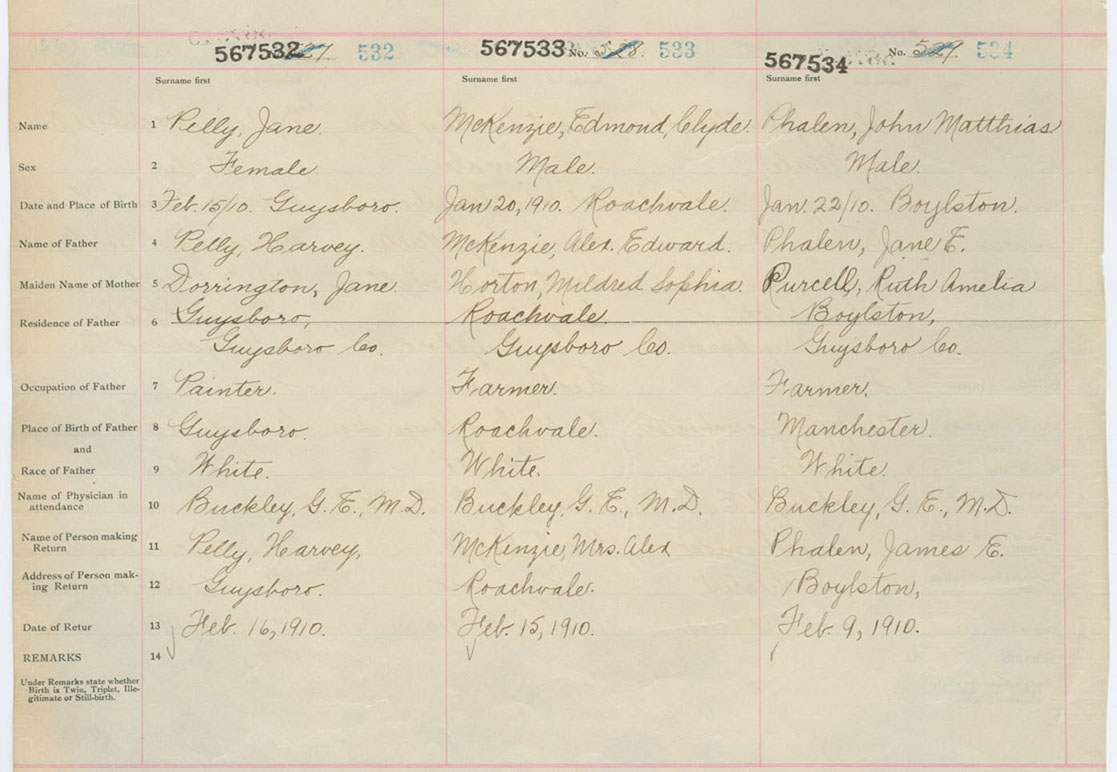 567532 527 532 567533 No. 528 533 567534 No. 529 534
Surname first Surname first Surname first
Name 1 Pelly, Jane. McKenzie, Edmond, Clyde. Phalen, John Matthias
Sex 2 Female. Male. Male.
Date and Place of Birth 3 Feb. 15/10. Guysboro. Jan 20, 1910. Roachvale. Jan. 22/10. Boylston.
Name of Father 4 Pelly, Harvey. McKenzie, Alex. Edward. Phalen, Jane E.
Maiden Name of Mother 5 Dorrington, Jane. Horton, Mildred Sophia. Purcell, Ruth Amelia
Residence of Father 6 Guysboro, Roachvale. Boylston,
Guysboro Co. Guysboro Co. Guysboro Co.
Occupation of Father 7 Painter. Farmer. Farmer.
Place of Birth of Father 8 Guysboro. Roachvale. Manchester.
and
Race of Father 9 White. White. White.
Name of Physician in
attendance 10 Buckley, G. E., M.D. Buckley, G. E., M.D. Buckley, G. E., M.D.
Name of Person making
Return 11 Pelly, Harvey, McKenzie, Mrs. Alex Phalen, James E.
Address of Person mak-
ing Return 12 Guysboro. Roachvale. Boylston,
Date of Retur 13 Feb. 16, 1910. Feb. 15, 1910. Feb. 9, 1910.
REMARKS 14
Under Remarks state whether
Birth is Twin, Triplet, Ille-
gitimate or Still-birth.